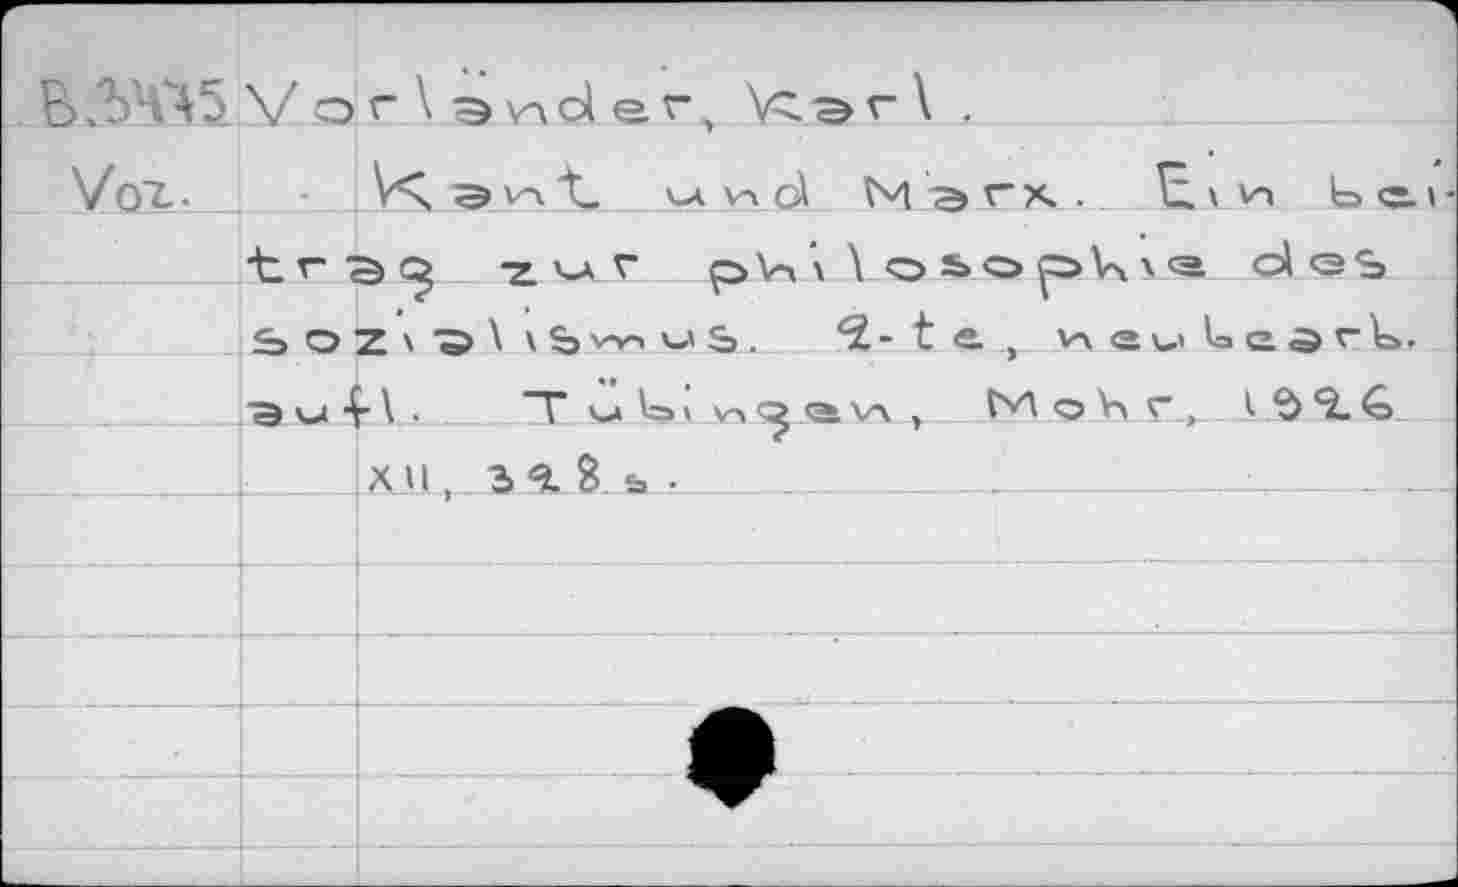 B.34745 Vorländer, Karl.
Voz. Kant und Marx. Ein bei-
trag zur philosophie des
sozialismus. 2-te, neubearb.
aufl. Tübingen, Mohr, 1926
XII, 328 s.